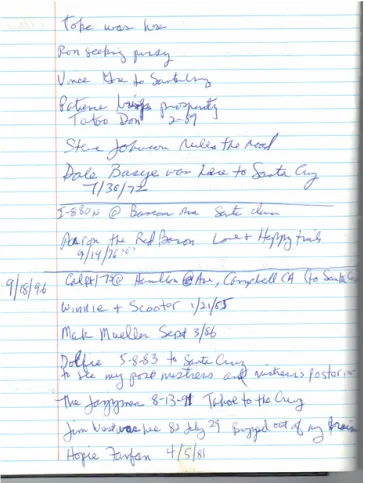 Tope was here
Ron seeking pussy
Vince to Santa Cruz
Patience brings prosperity
Tatoo Don 2-87
Steve Johnson rules the road
Dale Basye was here to Santa Cruz
7/30/72
I-880N @ Bascom Ave Santa Clara
Aaron the Red Baron Love + Happy trails
9/14/76
9/18/96 @ Hamilton Ave, Campbell CA (to Santa Cruz
Winnie + Scooter 1/21/85
Mark Mueller Sept 3/86
Dollie 5-8-83 to Santa Cruz
to see my pore mistress and
The Jazzman 8-13-91 Tahoe to the Cruz
Jim was here 82 July 29 Bugged out of my brain
Hopie Farfan 4/5/81